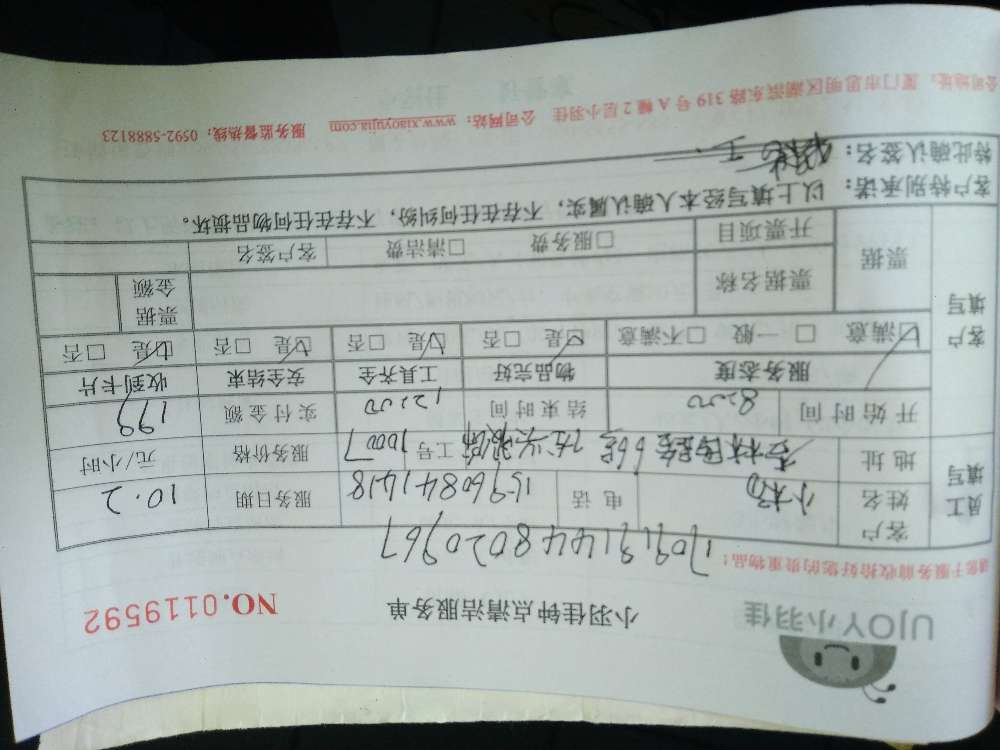 UJOY小羽佳
小羽佳钟点清洁服务单
NO.0119592
请您于服务前收拾好您的贵重物品！
17091911448020967
员工填写
客户姓名 小杨 电话 15960841418 服务日期 10.2
地址 工号 10007 服务价格 元/小时
开始时间 8:00 结束时间 12:00 实付金额 199
客户填写
服务态度 物品完好 工具齐全 安全结束 收到卡片
☑满意 □一般 □不满意 ☑是 □否 ☑是 □否 ☑是 □否 ☑是 □否
票据 票据名称 票据金额
开票项目 □服务费 □清洁费 客户签名
客户特别承诺：以上填写经本人确认属实，不存在任何纠纷，不存在任何物品损坏。
特此确认签名：
公司地址：厦门市思明区湖滨东路 319 号 A 幢 2 层小羽佳 公司网站：www.xiaoyujia.com 服务监督热线：0592-5888123